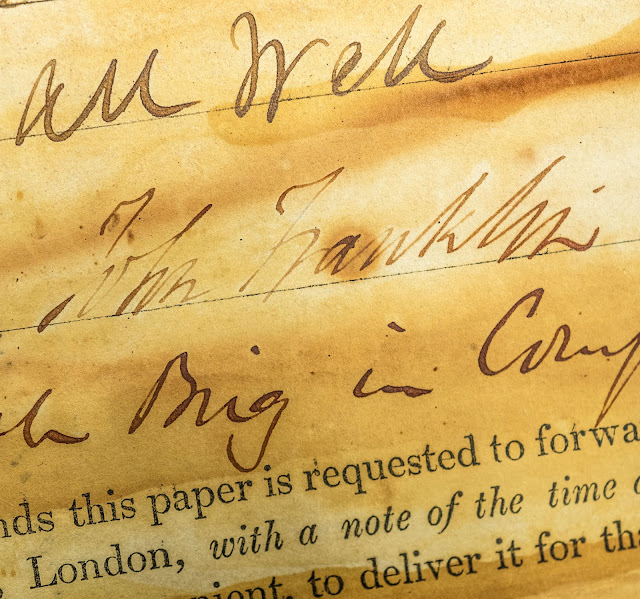 all Well
John Franklin
ch Brig in Comp
nds this paper is requested to forwa
, London, with a note of the time o
pient, to deliver it for tha